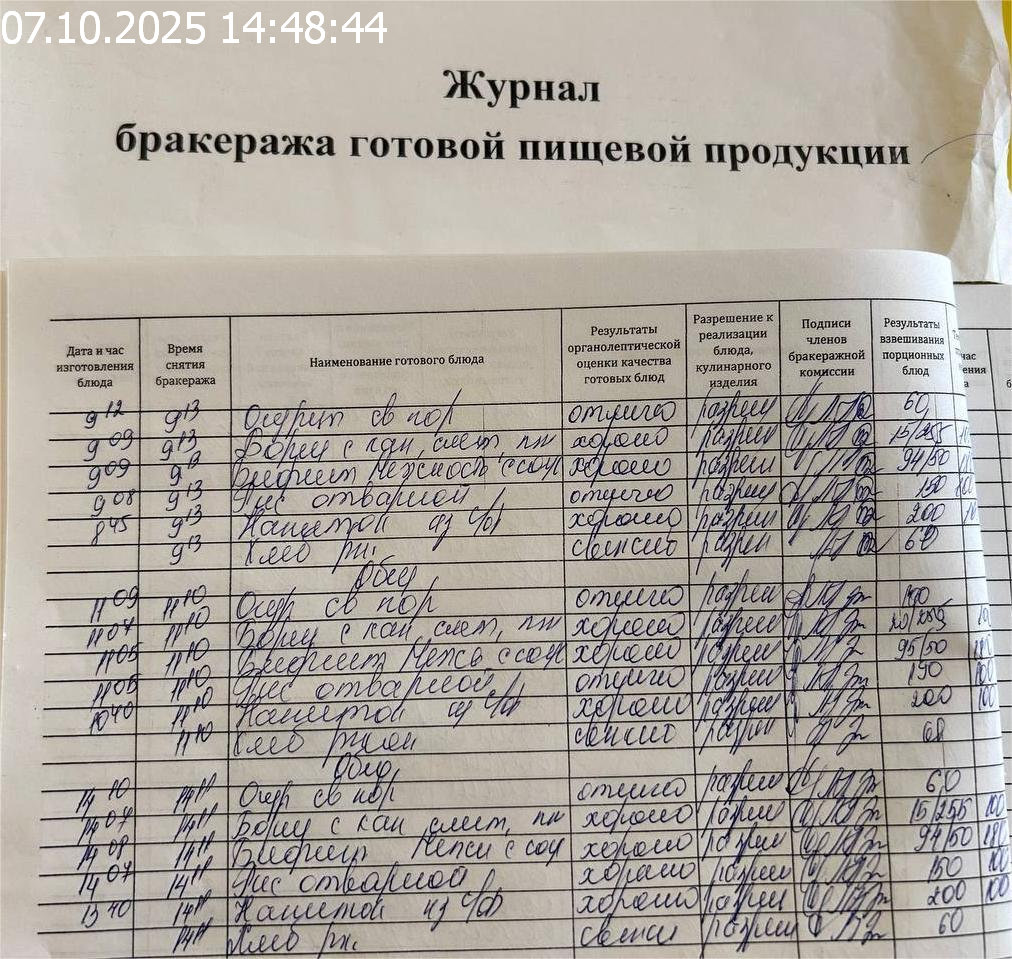 07.10.2025 14:48:44
Журнал
бракеража готовой пищевой продукции
Дата и час изготовления блюда
Время снятия бракеража
Наименование готового блюда
Результаты органолептической оценки качества готовых блюд
Разрешение к реализации блюда, кулинарного изделия
Подписи членов бракеражной комиссии
Результаты взвешивания порционных блюд
9 12 9 13 Огурец св пор отлично разреш 60
9 09 9 13 Борщ с кап, смет, пт хорошо разреш 15/255
9 09 Бифштекс Нежность с соус хорошо разреш 94/50
9 08 9 13 Рис отварной отлично разреш 150
8 45 9 13 Напиток из ч/см хорошо разреш 200
9 13 Хлеб рж. свежий разреш 60
Обед
11 09 11 10 Огур св пор отлично разреш 100
11 04 11 10 Борщ с кап, смет, пт хорошо разреш
11 05 11 10 Бифштекс Нежн с соус хорошо разреш 95/50
11 06 11 10 Рис отварной отлично разреш 190
10 40 11 10 Напиток из ч/см хорошо разреш 200 100
11 10 Хлеб ржан свежий разреш 68
Обед
14 10 14 11 Огур св пор отлично разреш 60
14 07 14 11 Борщ с кап, смет, пт хорошо разреш 15/255 100
14 08 14 11 Бифштекс Нежн с соу хорошо разреш 94/50
14 07 14 11 Рис отварной хорошо разреш 150 100
13 40 14 11 Напиток из ч/см хорошо разреш 200 100
14 11 Хлеб рж. свежий разреш 60